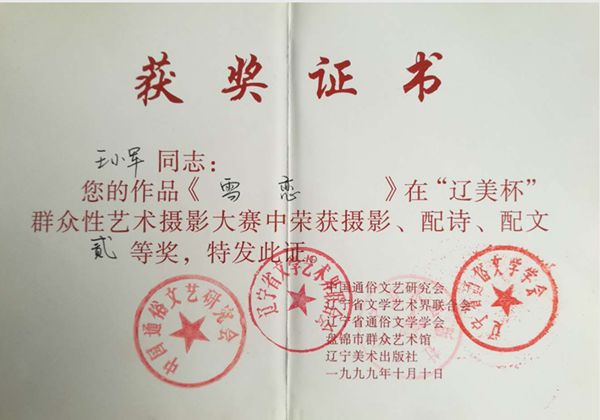 获奖证书
王小军 同志：
您的作品《 雪 恋 》在“辽美杯”
群众性艺术摄影大赛中荣获摄影、配诗、配文
贰 等奖，特发此证。
中国通俗文艺研究会
辽宁省文学艺术界联合会
辽宁省通俗文学学会
盘锦市群众艺术馆
辽宁美术出版社
一九九九年十月十日
中国通俗文艺研究会
辽宁省文学艺术界联合会
辽宁省通俗文学学会